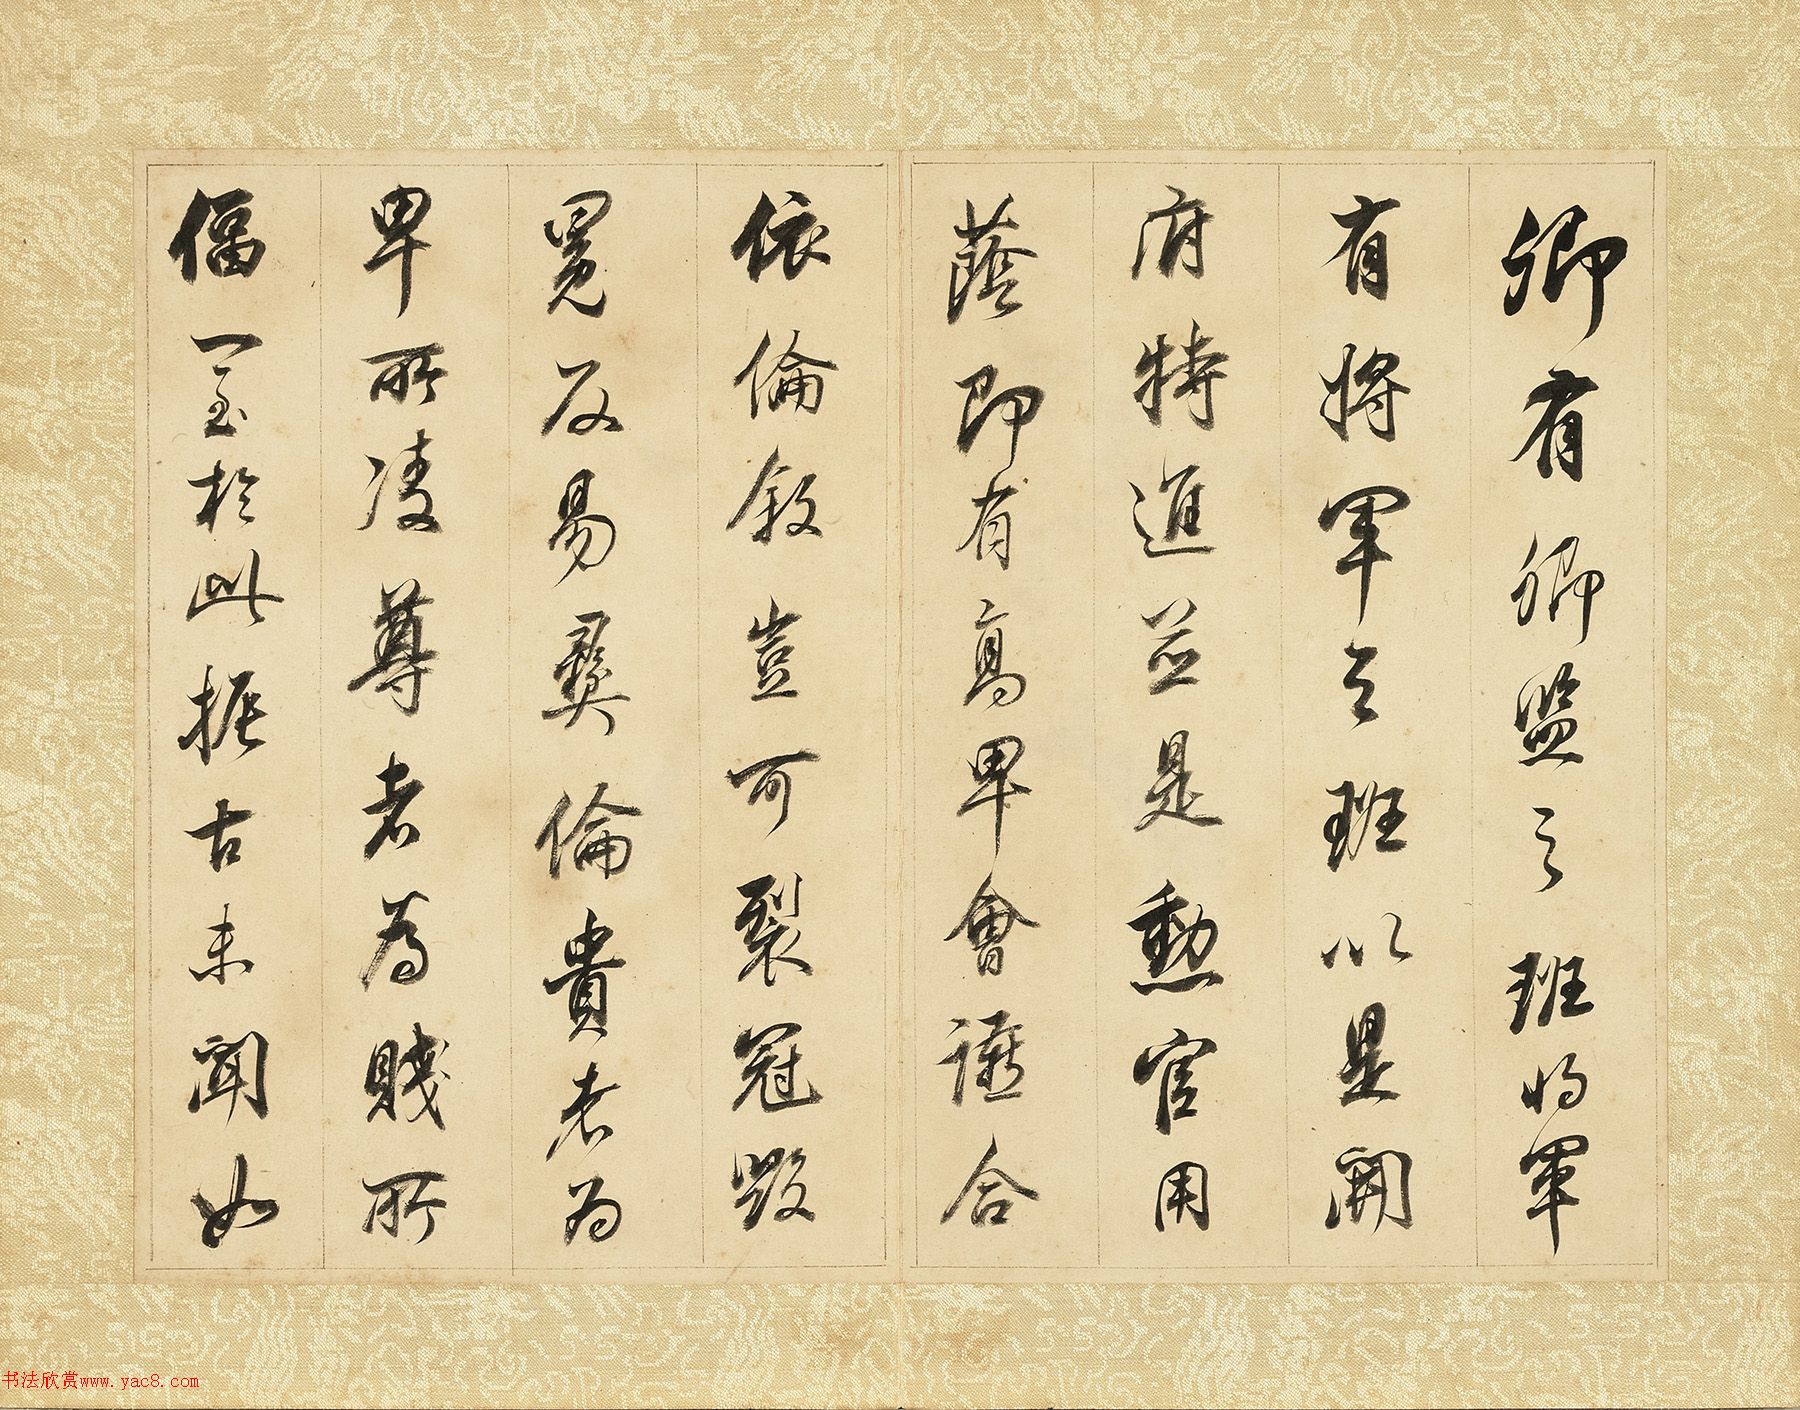 卿有卿監之班將軍
有將軍之班以是開
府特進並是勳官用
蔭即有高卑會讌合
依倫敘豈可裂冠毀
冕反易彝倫貴者為
卑所凌尊者為賤所
偪一至於此振古未聞如
书法欣赏www.yac8.com